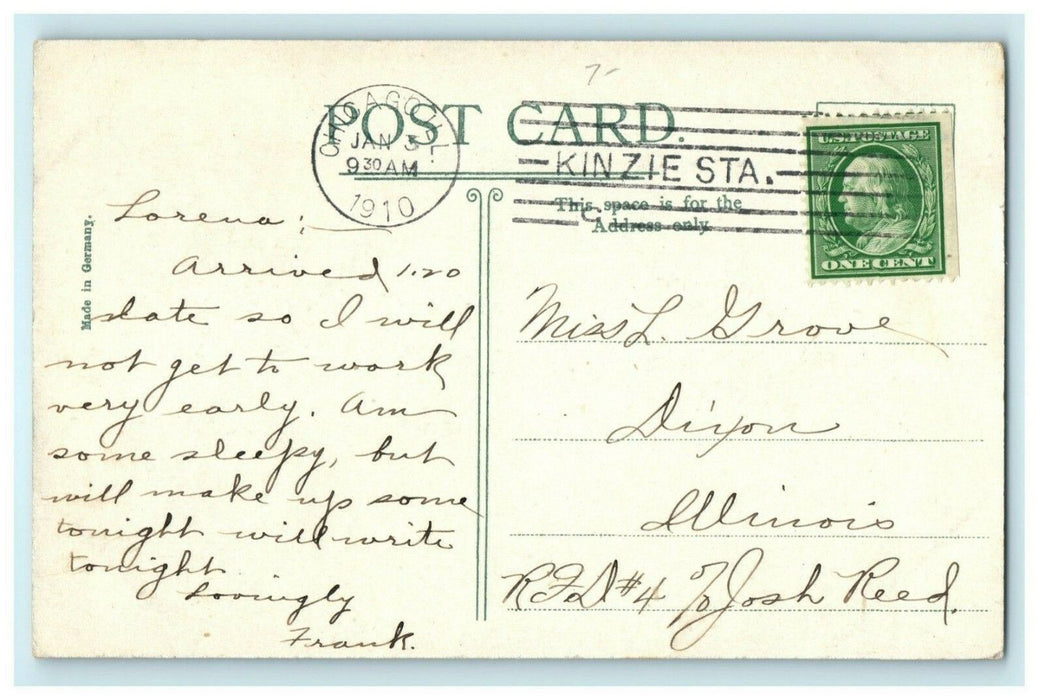 7-
POST CARD.
CHICAGO, ILL.
JAN 3
9 30 AM
1910
KINZIE STA.
U.S. POSTAGE
ONE CENT
This space is for the
Address only.
Made in Germany.
Lorena;
Arrived 1:20
late so I will
not get to work
very early. Am
some sleepy, but
will make up some
tonight will write
tonight
Lovingly
Frank.
Miss L. Grove
Dixon
Illinois
RFD #4 c/o Josh Reed.